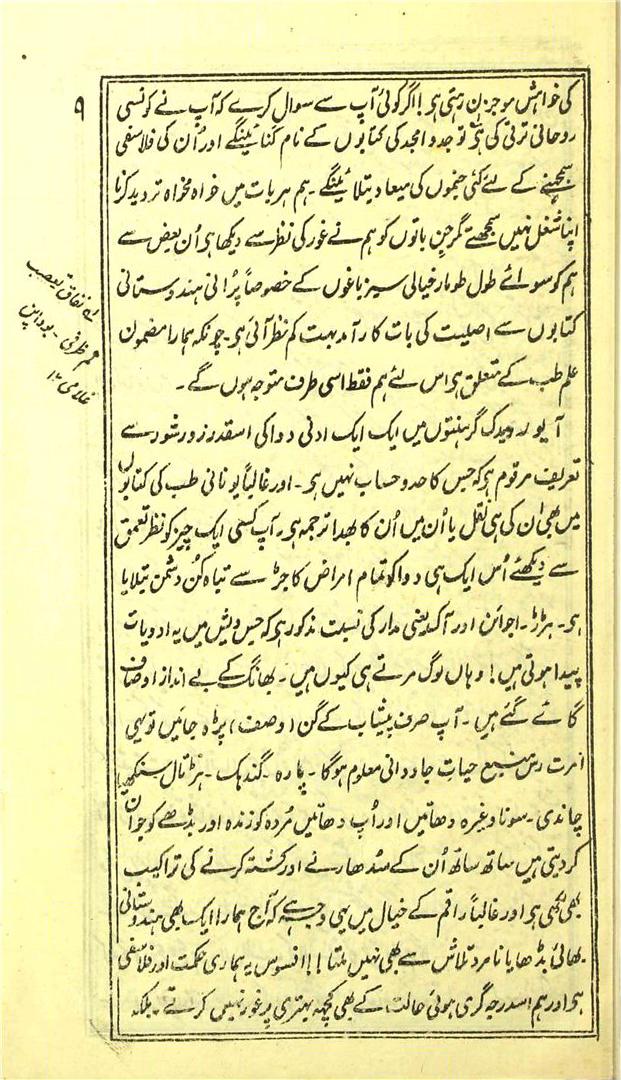 ۹
کی خواہش موجزن رہتی ہی! اگر کوئی آپ سے سوال کرے کہ آپ نے کونسی
روحانی ترقی کی ہی تو جد و امجد کی کتابوں کے نام گنائینگے اور اُن کی فلاسفی
سمجھنے کے لئے کئی جنموں کی میعاد بتلائینگے۔ ہم ہر بات میں خواہ مخواہ تردید کرنا
اپنا شغل نہیں سمجھتے مگر جن باتوں کو ہم نے غور کی نظر سے دیکھا ہی اُن بعض سے
ہم کو سوائے طول طومار خیالی سبز باغوں کے خصوصاً پُرانی ہندوستانی
کتابوں سے اصلیت کی بات کارآمد بہت کم نظر آئی ہی۔ چونکہ ہمارا مضمون
علم طب کے متعلق ہی اس لئے ہم فقط اسی طرف متوجہ ہوں گے۔
آیورویدک گرہنتوں میں ایک ایک ادنیٰ دوا کی اسقدر زور شور سے
تعریف مرقوم ہی کہ جس کا حد و حساب نہیں ہی۔ اور غالباً یونانی طب کی کتابوں
میں بھی ان کی ہی نقل یا اُن میں اُن کا بھدا ترجمہ ہی۔ آپ کسی ایک چیز کو نظر تعمق
سے دیکھئے اُس ایک ہی دوا کو تمام امراض کا جڑ سے تباہ کُن دشمن بتلایا
ہی۔ ہڑڑ۔ اجوائن اور آک یعنی مدار کی نسبت مذکور ہی کہ جس دیش میں یہ ادویات
پیدا ہوتی ہیں! وہاں لوگ مرتے ہی کیوں ہیں۔ بھانگ کے بے انداز اوصاف
گائے گئے ہیں۔ آپ صرف پیشاب کے گن (وصف) پڑہ جائیں تو یہی
امرت رس منبع حیات جاودانی معلوم ہوگا۔ پارہ۔ گندہک۔ ہڑتال سنکھیا
چاندی۔ سونا وغیرہ دھاتیں اور اُپ دھاتیں مُردہ کو زندہ اور بڈھے کو جوان
کر دیتی ہیں ساتھ ساتھ اُن کے سُدھارنے اور کشتہ کرنے کی تراکیب
بھی لکھی ہی اور غالباً راقم کے خیال میں یہی وجہ ہے کہ آج ہمارا ایک بھی ہندوستانی
بھائی بڈھا یا نامرد تلاش سے بھی نہیں ملتا!! افسوس یہ ہماری حکمت اور فلاسفی
ہی اور ہم اسدرجہ گری ہوئی حالت کے بھی کچھ بہتری پر غور نہیں کرتے۔ بلکہ
لے نفاق تعصب
کم ظرفی۔ بوداپن
غلامی ۱۲